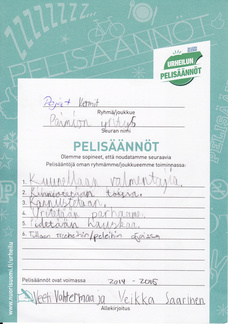 ZZZZZZZ...
PELISÄÄNNÖT
URHEILUN
PELISÄÄNNÖT
Kermit
Ryhmä/joukkue
Paimion yritys
Seuran nimi
PELISÄÄNNÖT
Olemme sopineet, että noudatamme seuraavia
Pelisääntöjä oman ryhmämme/joukkueemme toiminnassa:
1. Kuunnellaan valmentajia.
2. Kunnioitetaan toisia.
3. Kannustetaan.
4. Yritetään parhaamme.
5. Pidetään hauskaa.
6. Tullaan treeneihin/peleihin ajoissa
Pelisäännöt ovat voimassa 2014 - 2015
Veeti Vuhtermaa ja Veikka Saarinen
Allekirjoitus
www.nuorisuomi.fi/urheilu